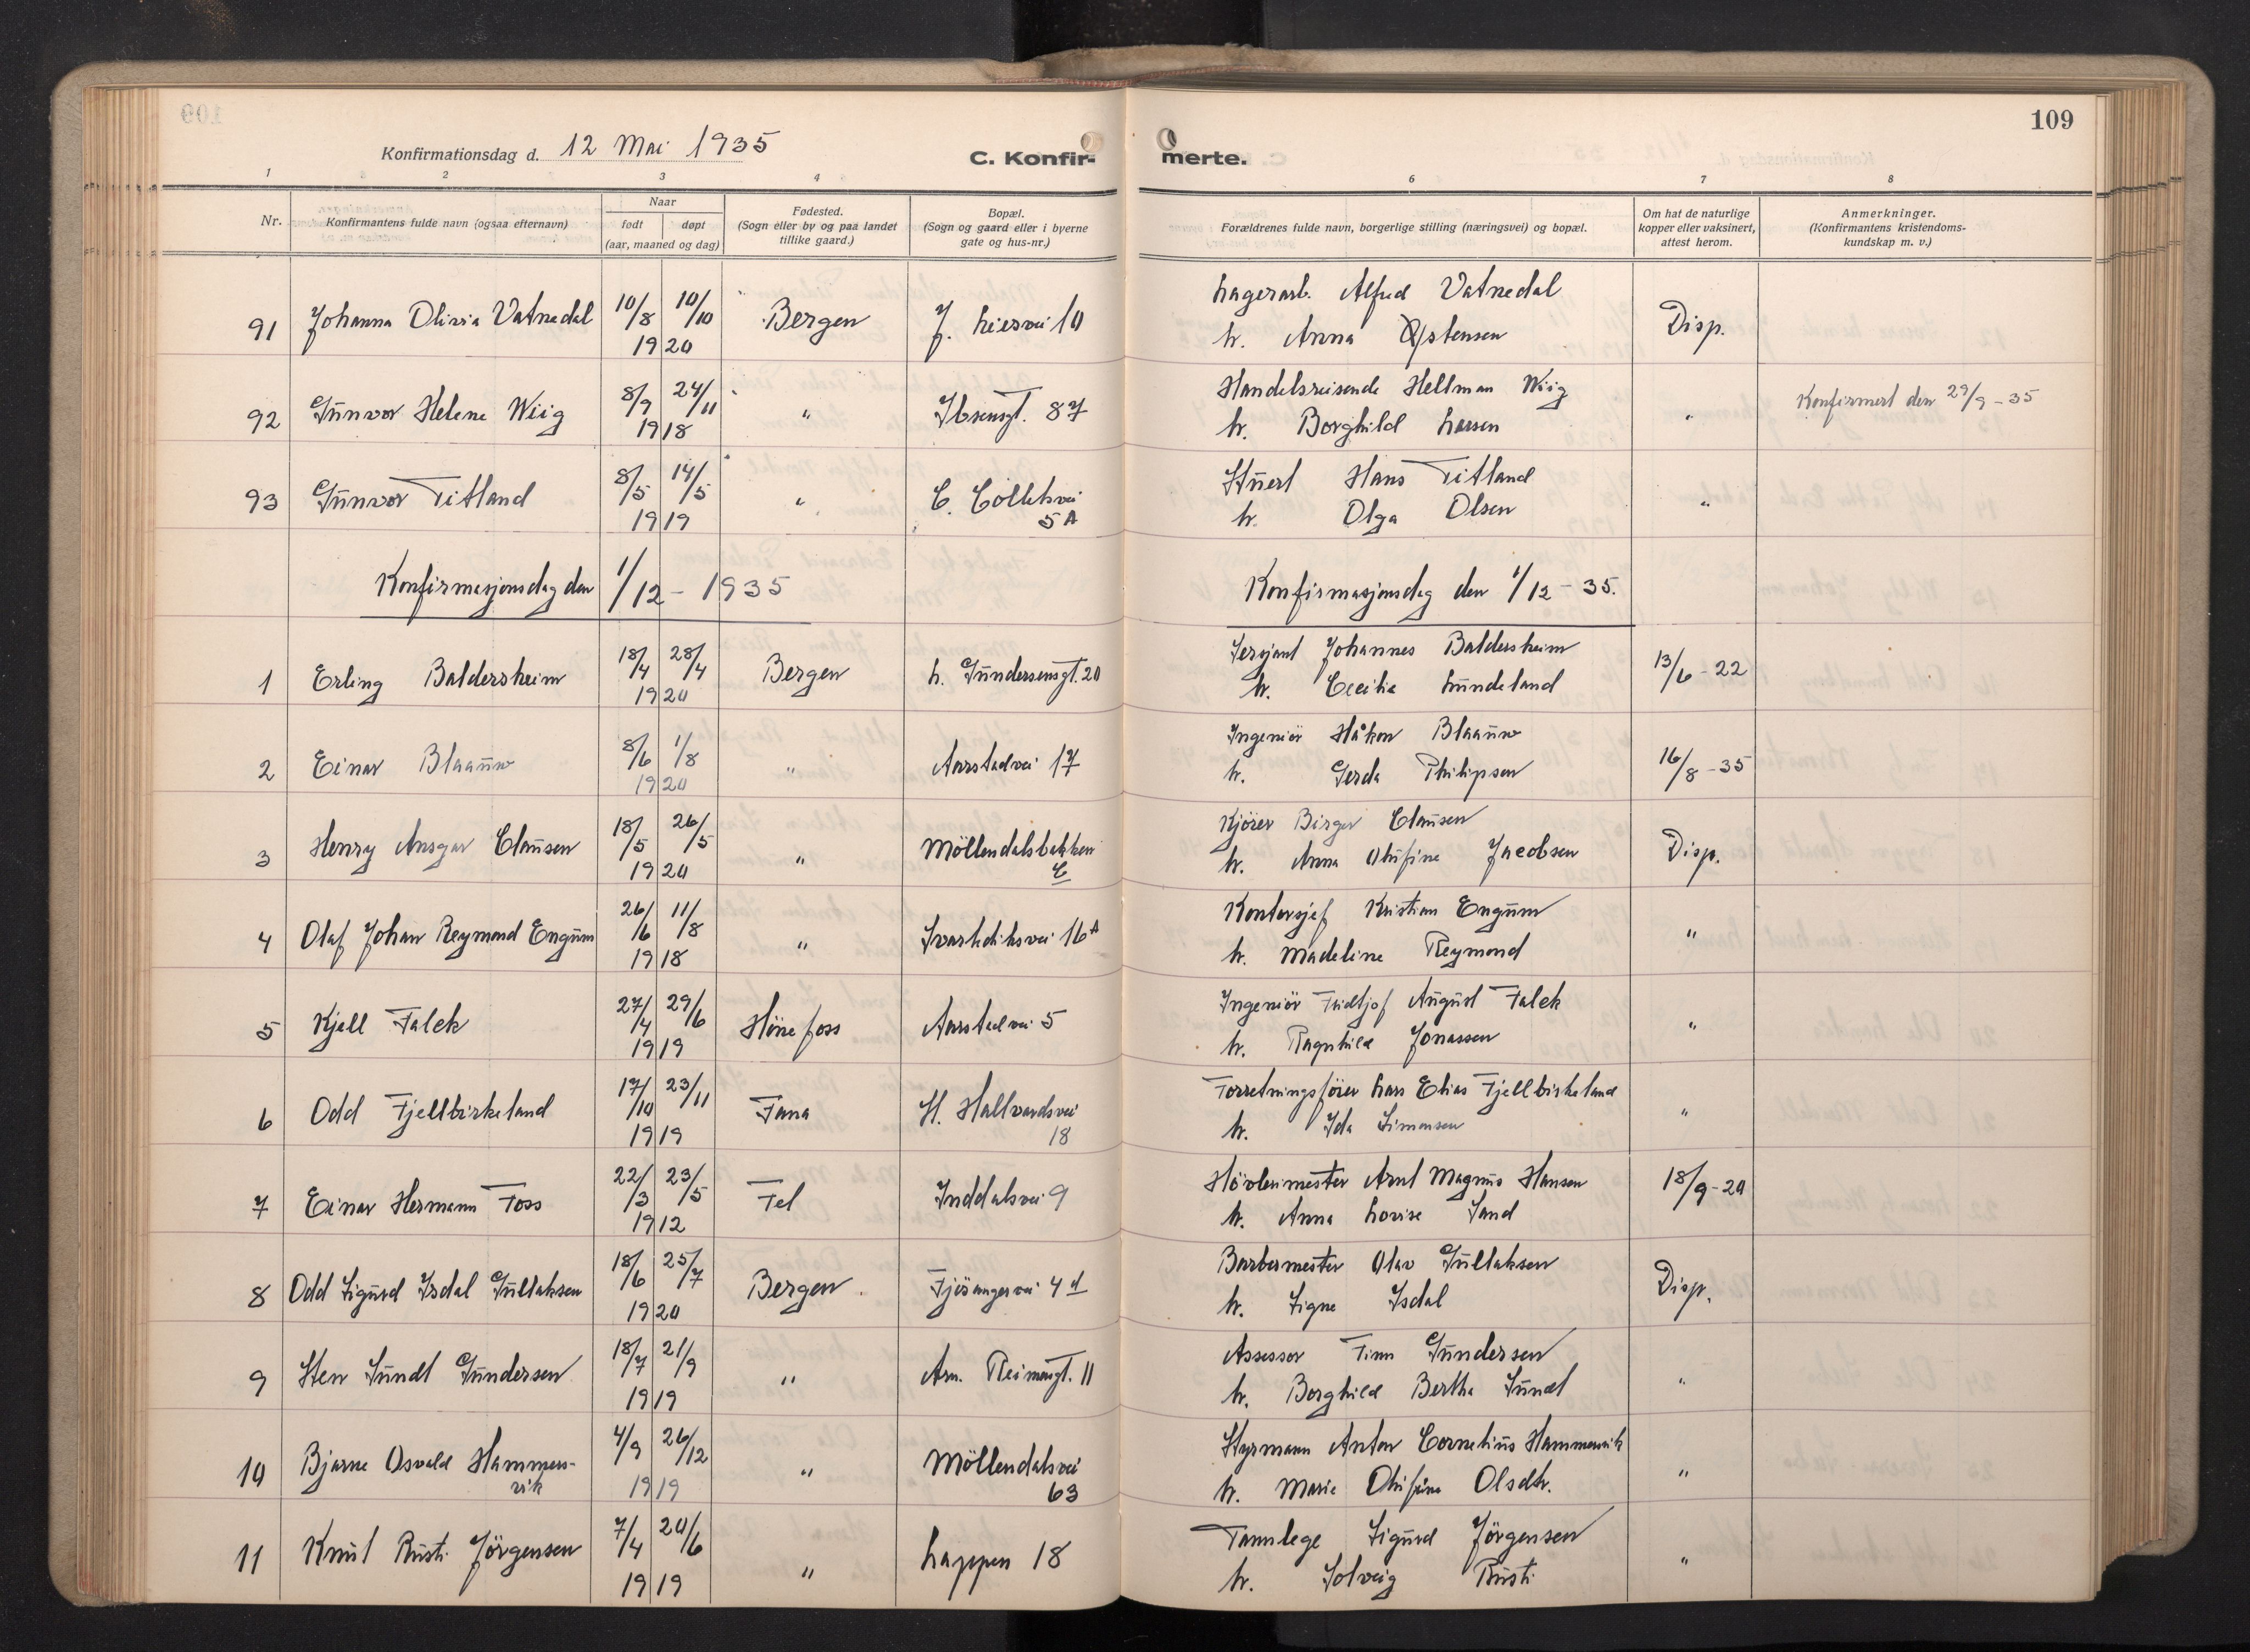 109
Konfirmationsdag d. 12 Mai 1935
C. Konfir-
merte.
1 2 3 4 6 7 8
Nr.
Konfirmantens fulde navn (ogsaa efternavn)
Naar
født døpt
(aar, maaned og dag)
Fødested.
(Sogn eller by og paa landet
tillike gaard.)
Bopæl.
(Sogn og gaard eller i byerne
gate og hus-nr.)
Forældrenes fulde navn, borgerlige stilling (næringsvei) og bopæl.
Om hat de naturlige
kopper eller vaksinert,
attest herom.
Anmerkninger.
(Konfirmantens kristendoms-
kundskap m. v.)
91 Johanna Olivia Vatnedal 10/8 10/10 1920 Bergen J. Leiesvei 10
Lagerarb. Alfred Vatnedal
h. Anna Østensen
Disp.
92 Gunvor Helene Wiig 8/9 24/11 1918 " Ibsensgt. 87
Handelsreisende Hellman Wiig
h. Borghild Larsen
"
Konfirmert den 29/9-35
93 Gunvor Titland 8/5 14/5 1919 " C. Colletsvei
5A
Stuert Hans Titland
h. Olga Olsen
"
Konfirmasjonsdag den 1/12 - 1935
Konfirmasjonsdag den 1/12 - 35.
1 Erling Baldersheim 18/4 28/4 1920 Bergen L. Gundersensgt. 20
Sersjant Johannes Baldersheim
h. Cecilie Lundeland
13/6-22
2 Einar Blaauw 8/6 1/8 1920 " Aarstadvei 17
Ingeniör Håkon Blaauw
h. Gerda Philipsen
16/8-35
3 Henry Ansgar Clausen 18/5 26/5 1920 " Möllendalsbakken
6
Kjörer Birger Clausen
h. Anna Olufine Jacobsen
Disp.
4 Olaf Johan Reymond Engum 26/6 11/8 1918 " Svartediksvei 16A
Kontorsjef Kristian Engum
h. Madeline Reymond
"
5 Kjell Falck 27/4 29/6 1919 Hönefoss Aarstadvei 5
Ingeniör Fridtjof August Falck
h. Ragnhild Jonassen
"
6 Odd Fjellbirkeland 17/10 23/11 1919 Fana H. Hallvardsvei
18
Forretningsförer Lars Elias Fjellbirkeland
h. Ida Simonsen
"
7 Einar Hermann Foss 22/3 23/5 1912 Fet Inddalsvei 9
Hövlerimester Arnt Magnus Hansen
h. Anna Lovise Sand
18/9-20
8 Odd Sigurd Isdal Gullaksen 18/6 25/7 1920 Bergen Fjösangervei 4d
Barbermester Olav Gullaksen
h. Signe Isdal
Disp.
9 Sten Sundt Gundersen 18/7 21/9 1919 " Arn. Reimersgt. 11
Assessor Finn Gundersen
h. Borghild Bertha Sundt
"
10 Bjarne Osvald Hammers-
vik 4/9 26/12 1919 " Möllendalsvei
63
Styrmann Anton Cornelius Hammersvik
h. Marie Olufine Olsdtr.
"
11 Knut Rusti Jörgensen 7/4 20/6 1919 " Lappen 18
Tannlege Sigurd Jörgensen
h. Solveig Rusti
"